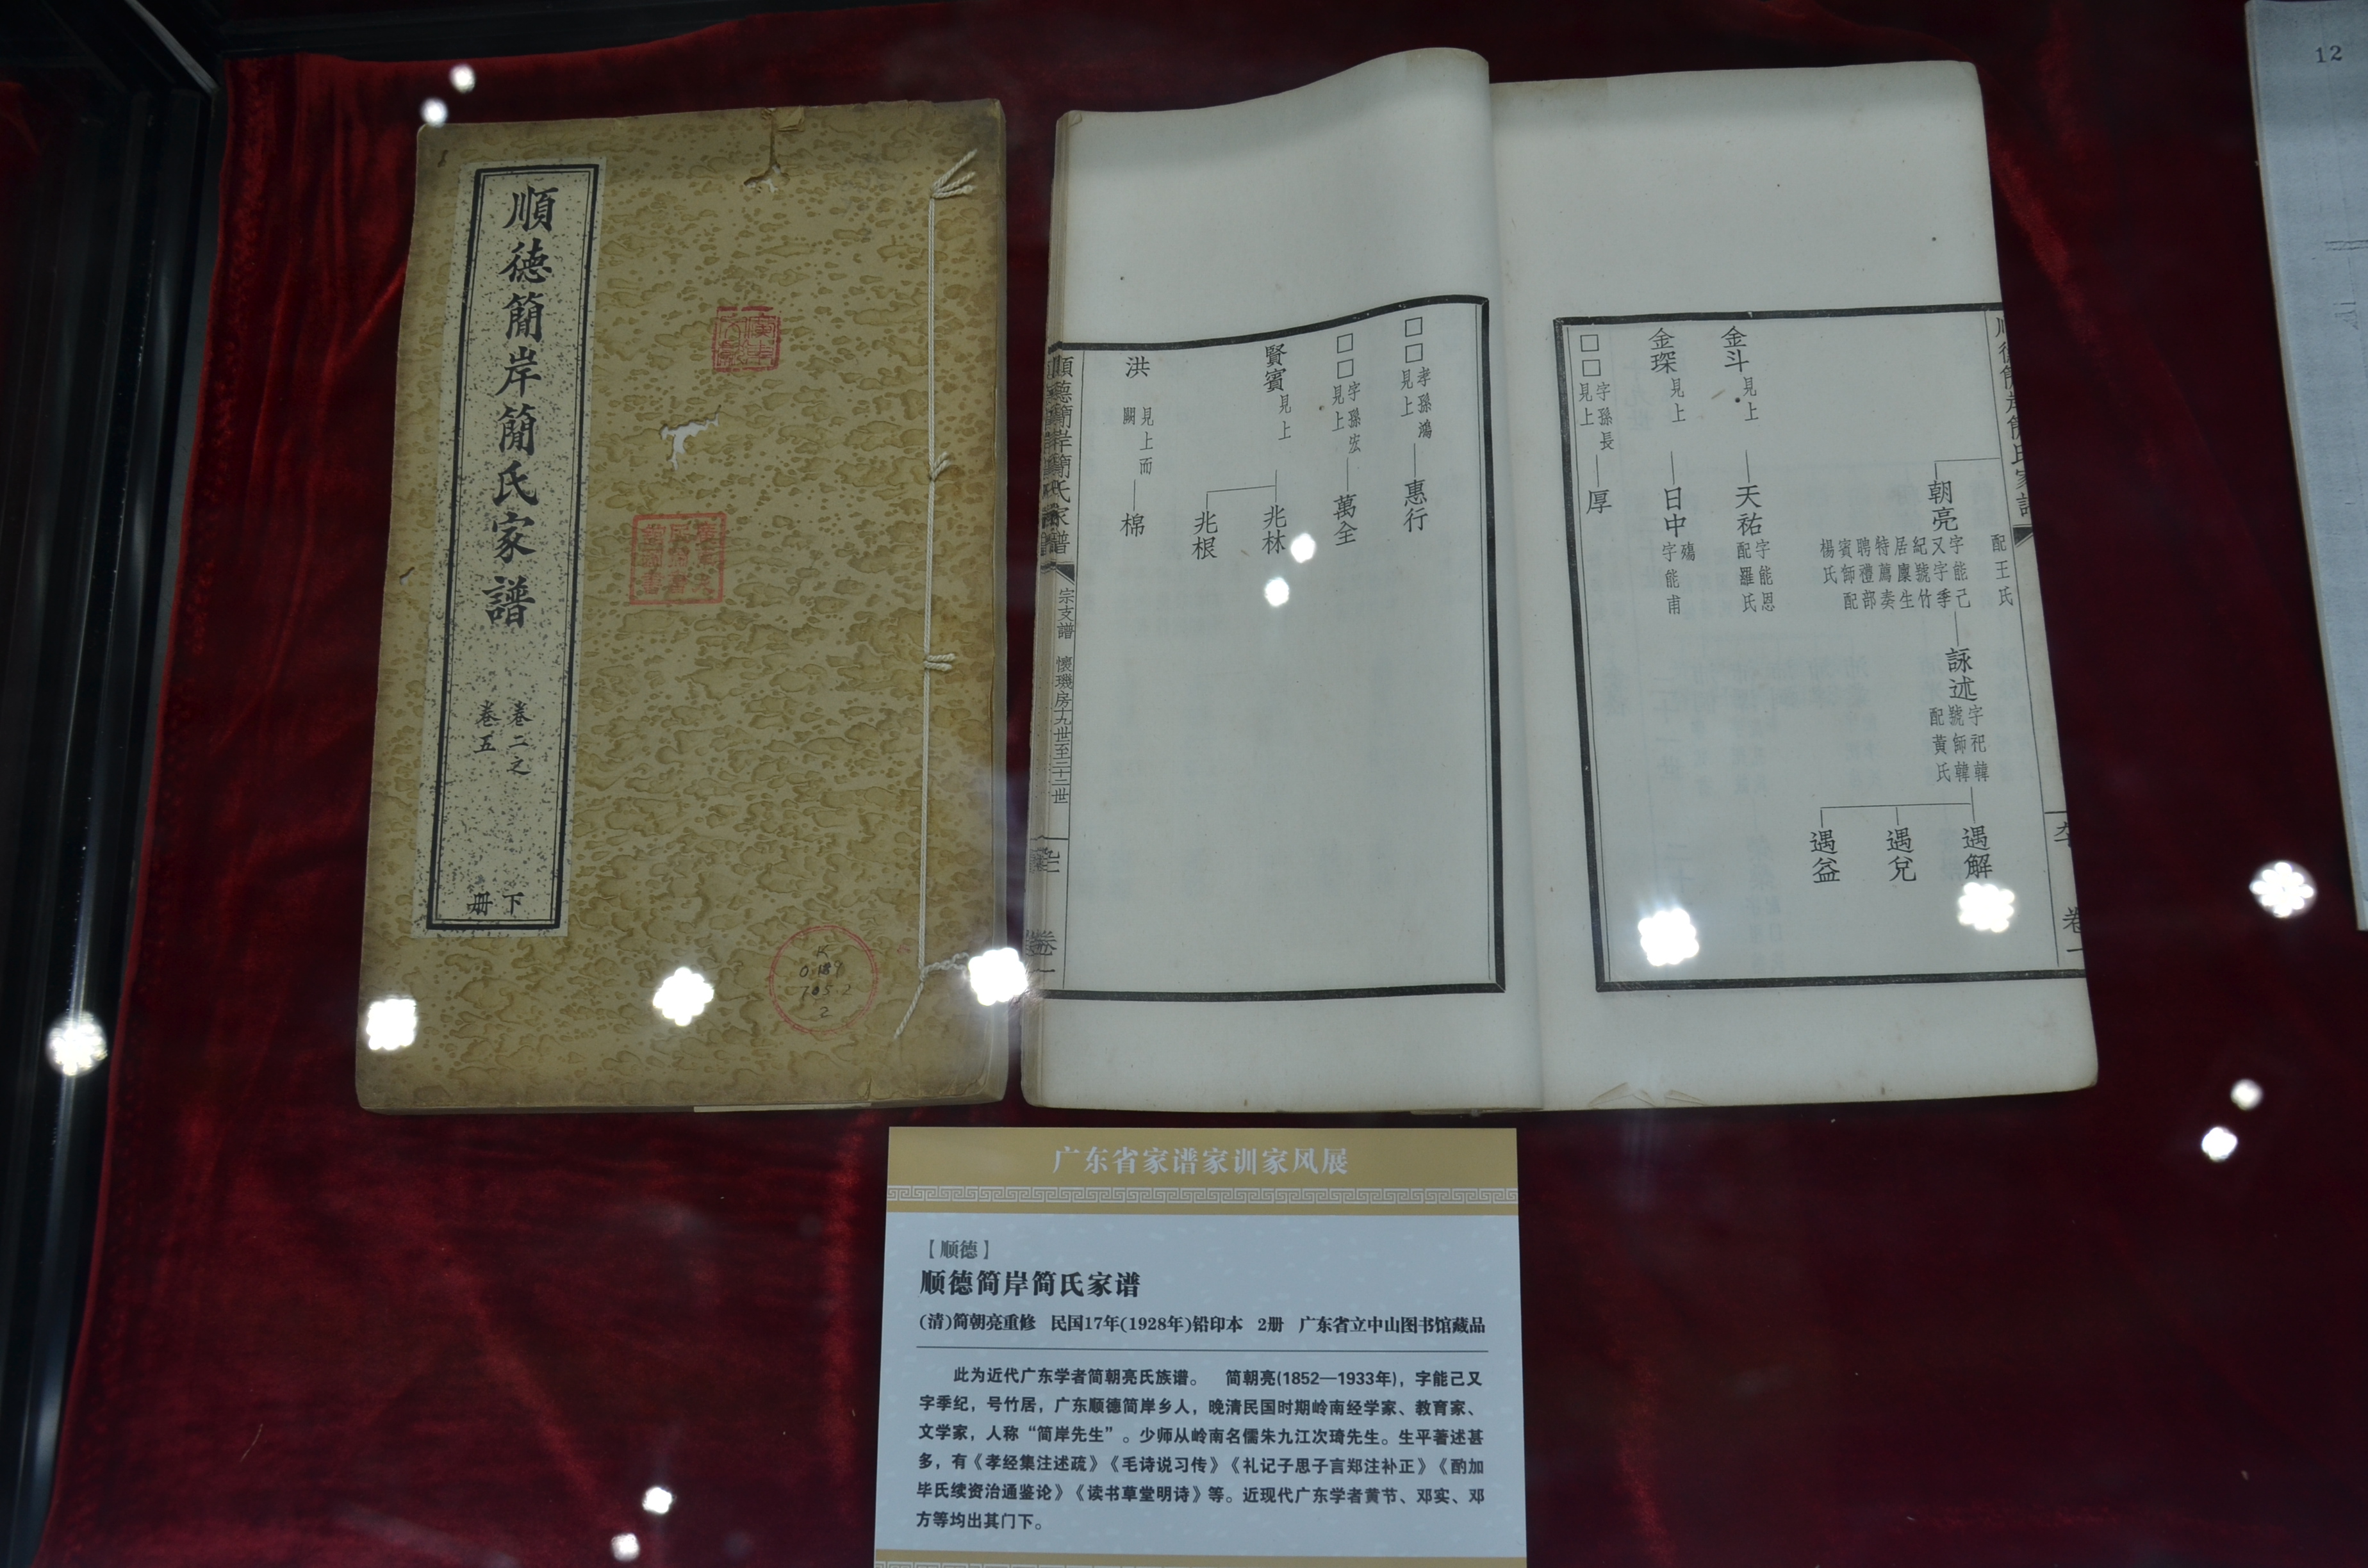 順德簡岸簡氏家譜
卷二之
卷五
下
册
K
0.189
705.2
2
配王氏
朝亮
字能己
又字季
紀號竹
居麋生
特薦奏
聘禮部
賓師配
楊氏
詠述
字祀韓
號師韓
配黃氏
遇解
遇兌
遇益
金斗
見上
天祐
字能恩
配羅氏
金琛
見上
日中
殤
字能甫
□□
字孫長
見上
厚
□□
孝孫鴻
見上
惠行
□□
字孫宏
見上
萬全
賢賓
見上
兆林
兆根
洪
見上而
闕
棉
順德簡岸簡氏家譜
宗支譜
懷璣房九世至二十二世
卷一
12
广东省家谱家训家风展
【顺德】
顺德简岸简氏家谱
(清)简朝亮重修 民国17年(1928年)铅印本 2册 广东省立中山图书馆藏品
此为近代广东学者简朝亮氏族谱。 简朝亮(1852—1933年)，字能己又
字季纪，号竹居，广东顺德简岸乡人，晚清民国时期岭南经学家、教育家、
文学家，人称“简岸先生”。少师从岭南名儒朱九江次琦先生。生平著述甚
多，有《孝经集注述疏》《毛诗说习传》《礼记子思子言郑注补正》《酌加
毕氏续资治通鉴论》《读书草堂明诗》等。近现代广东学者黄节、邓实、邓
方等均出其门下。